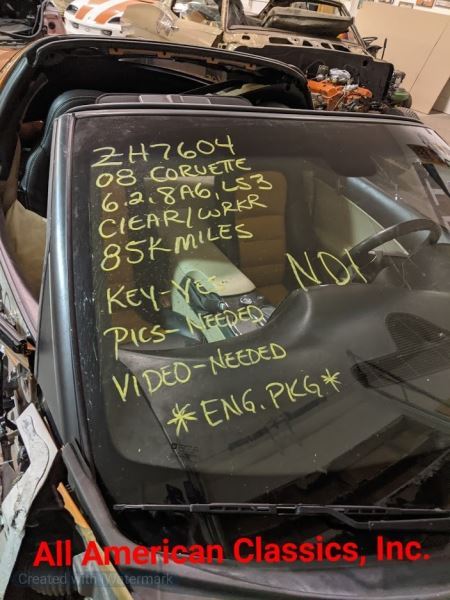 ZH7604
08 CORVETTE
6.2, 8A6, LS3
CLEAR/WRKR
85K MILES
KEY-YES
NDI
PICS-NEEDED
VIDEO-NEEDED
*ENG. PKG*
All American Classics, Inc.
Created with iWatermark